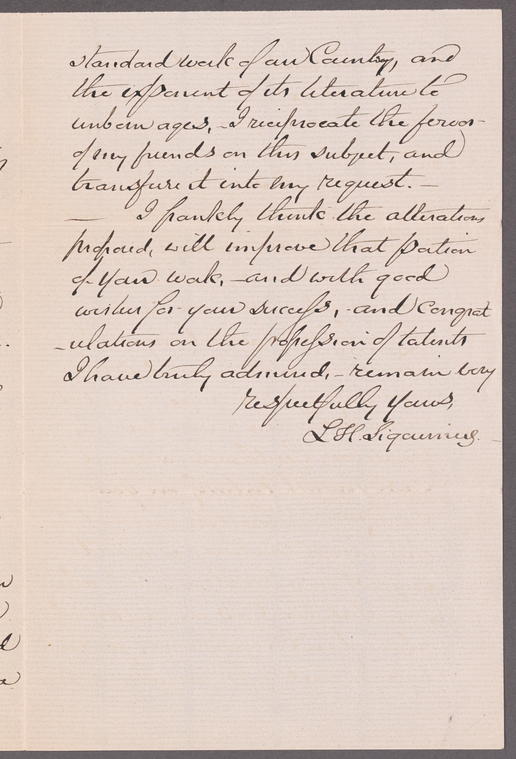 standard work of our Country, and
the exponent of its literature to
unborn ages, - I reciprocate the fervor
of my friends on this subject, and
transfuse it into my request. -
— I frankly think the alterations
proposed, will improve that portion
of your work, - and with good
wishes for your success, - and congrat
-ulations on the profession of talents
I have truly admired, - remain very
respectfully yours,
L. H. Sigourney.